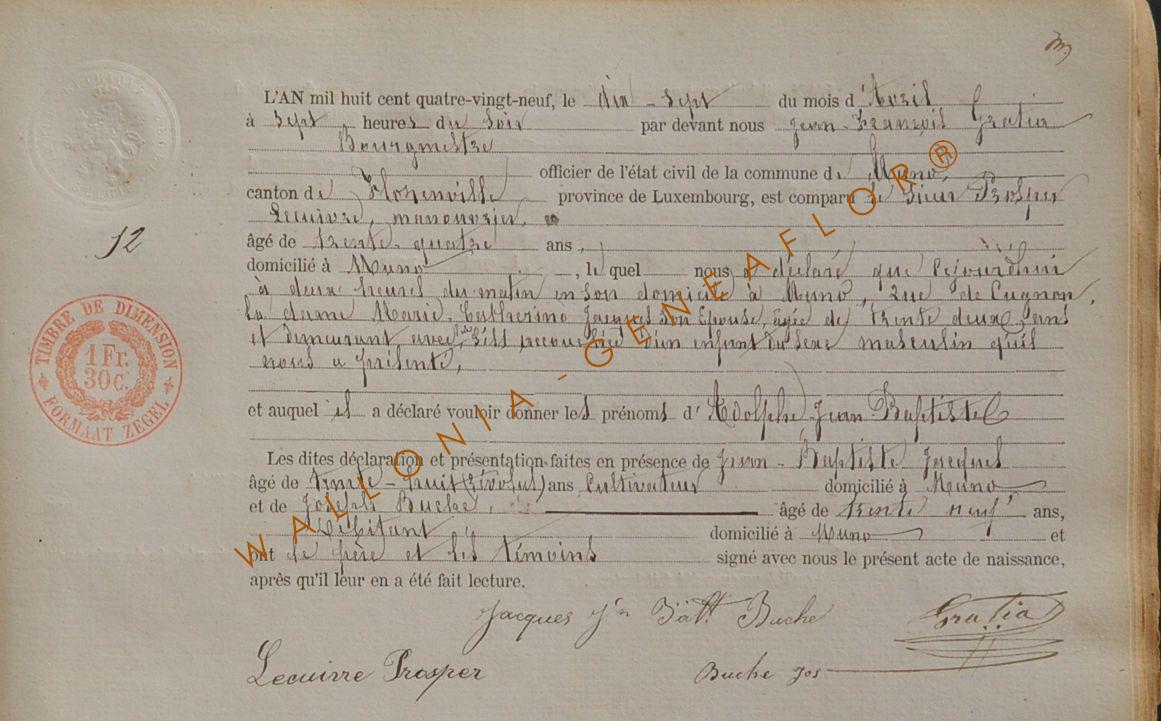 L'AN mil huit cent quatre-vingt-neuf, le dix-sept du mois d'Avril
à sept heures du soir par devant nous Jean-François Gratia
Bourgmestre
officier de l'état civil de la commune de Muno,
canton de Florenville province de Luxembourg, est comparu le Sieur Prosper
Lecuivre, manouvrier,
âgé de trente-quatre ans,
domicilié à Muno, le quel nous a déclaré que cejourd'hui
à deux heures du matin en son domicile à Muno, rue de Cugnon,
la dame Marie Catherine Jacques son Epouse, âgée de trente deux ans
et demeurant avec lui s'est accouchée d'un enfant du sexe masculin qu'il
nous a présenté,
et auquel il a déclaré vouloir donner les prénoms d'Adolphe, Jean Baptiste
Les dites déclaration et présentation faites en présence de Jean-Baptiste Jacques
âgé de trente-huit (révolus) ans, Cultivateur domicilié à Muno
et de Joseph Buche, âgé de trente neuf ans,
Débitant domicilié à Muno et
ont le père et les témoins signé avec nous le présent acte de naissance,
après qu'il leur en a été fait lecture.
Jacques Jn Batt. Buche Gratia
Lecuivre Prosper Buche Jos
12
TIMBRE DE DIMENSION
1 Fr.
30 C.
FORMAAT ZEGEL
WALLONIA-GENEAFLOR®